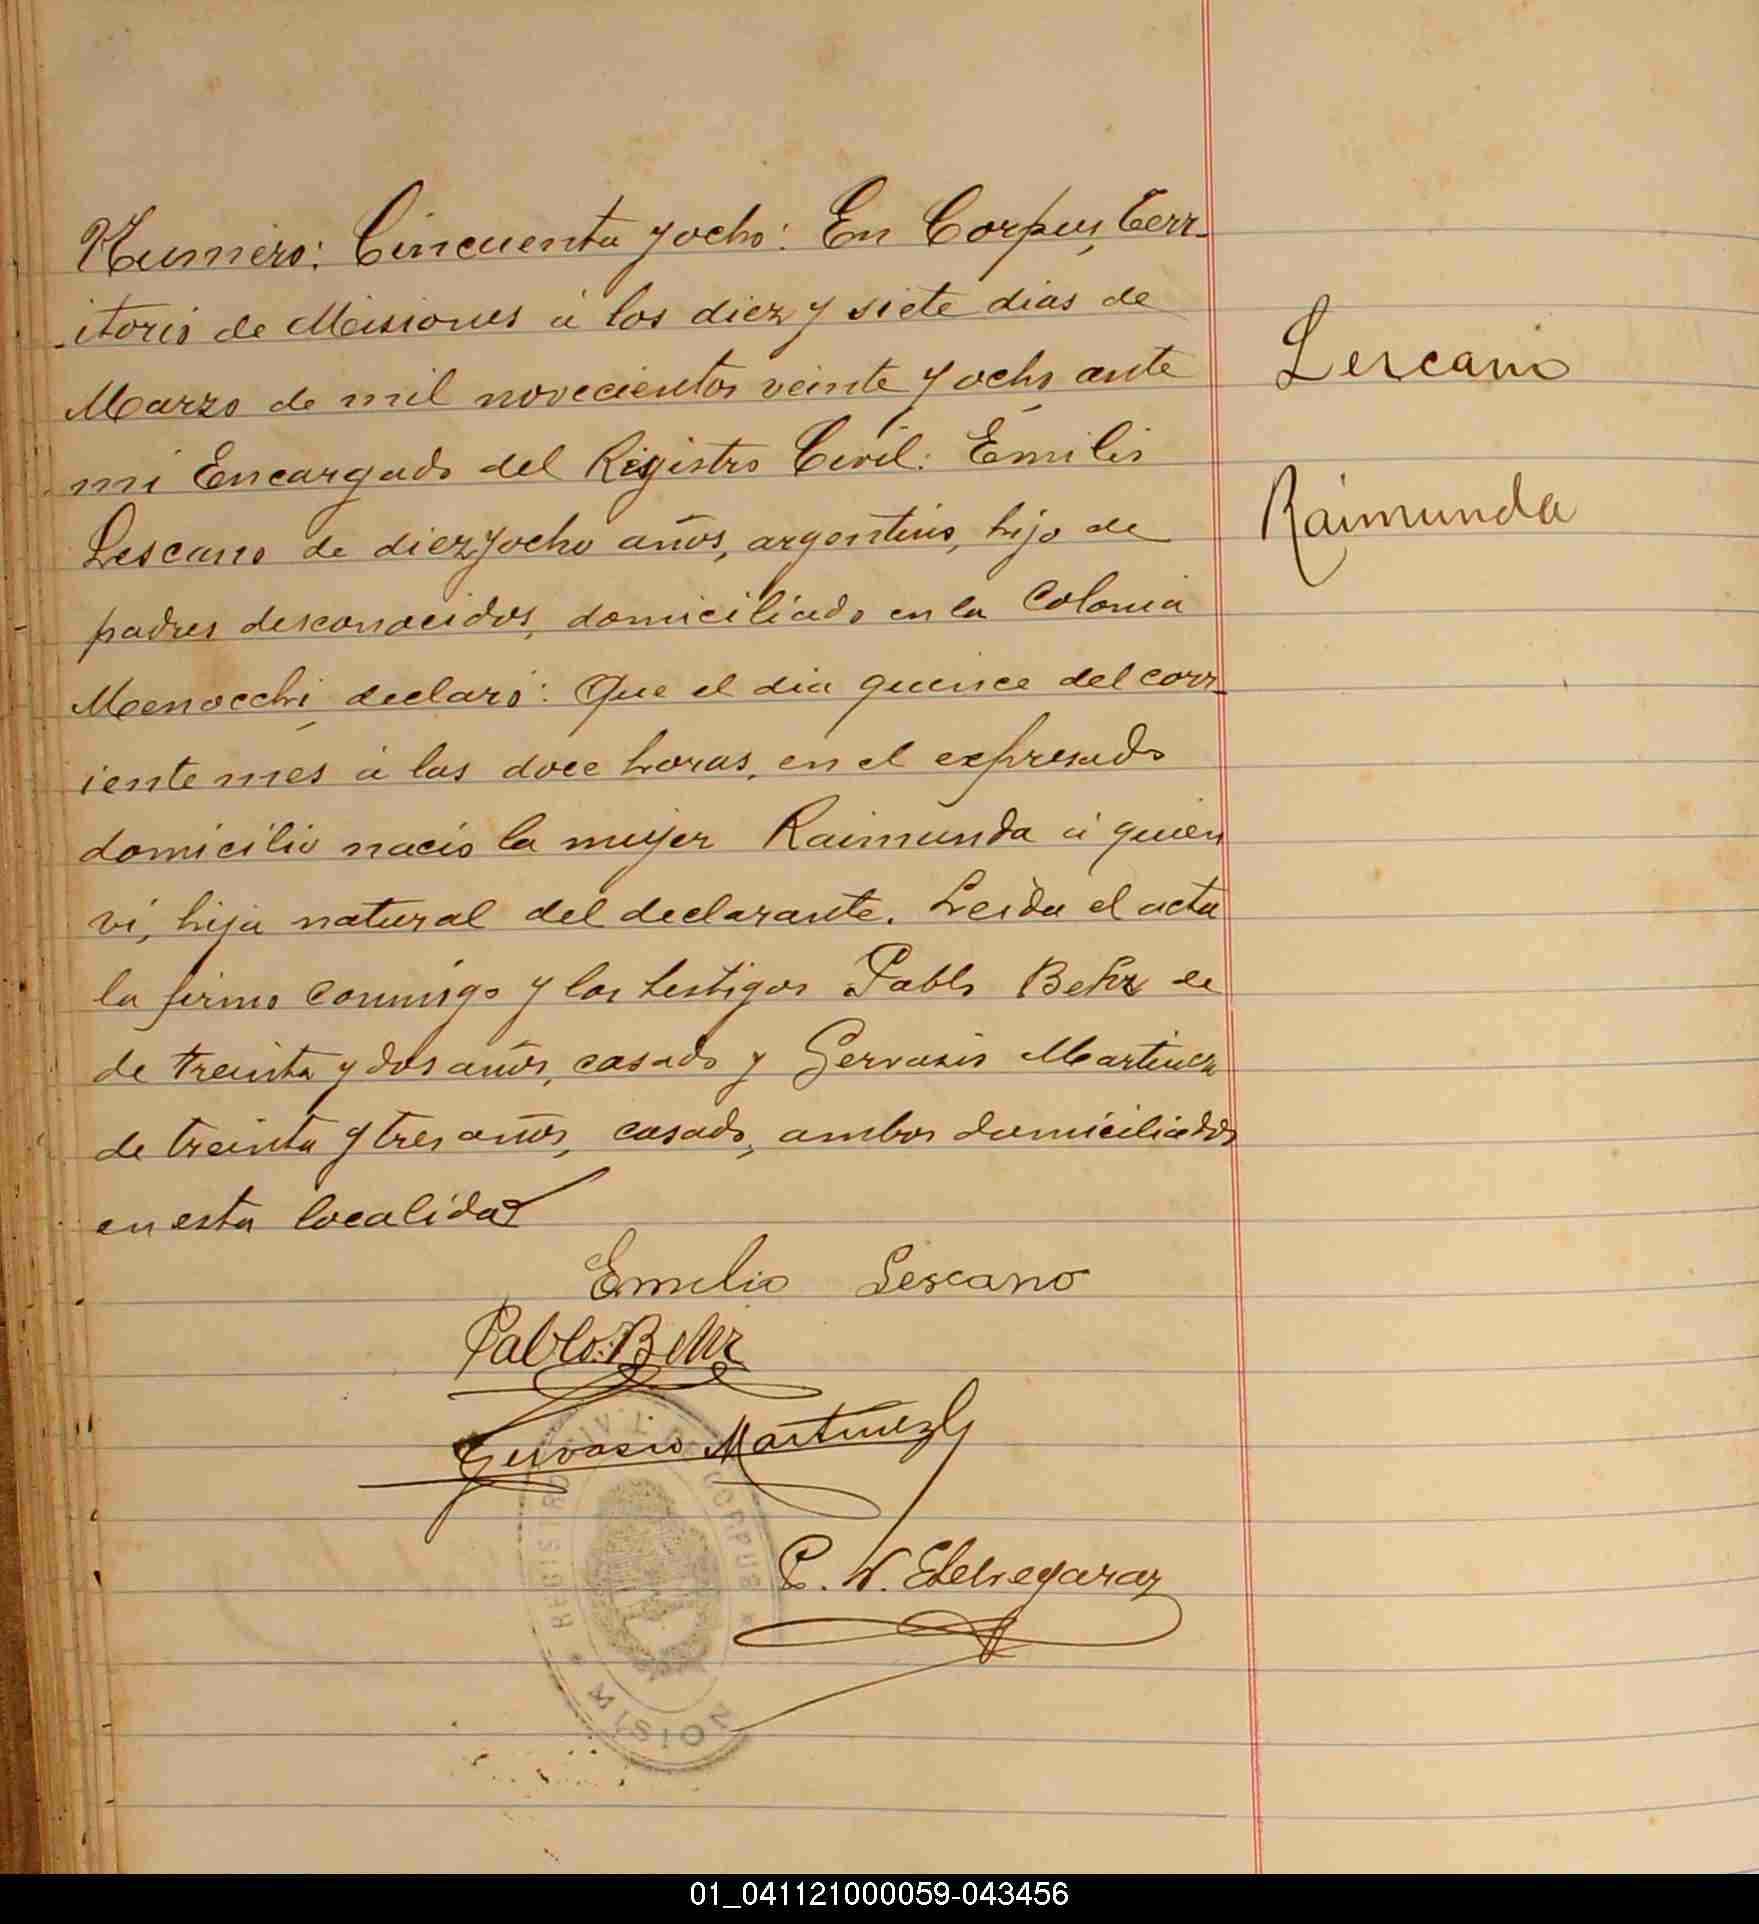 Numero: Cincuenta y ocho: En Corpus, Terr-
-itorio de Misiones á los diez y siete dias de
Marzo de mil novecientos veinte y ocho ante
mi Encargado del Registro Civil: Emilio
Lescano de diez y ocho años, argentino, hijo de
padres desconocidos, domiciliado en la Colonia
Menocchi, declaró: Que el dia quince del corr-
iente mes á las doce horas, en el expresado
domicilio nació la mujer Raimunda á quien
vi, hija natural del declarante. Leida el acta
la firmo conmigo y los testigos Pablo Behr de
de treinta y dos años, casado y Gervasio Martinez
de treinta y tres años, casado, ambos domiciliados
en esta localidad
Lescano
Raimunda
Emilio Lescano
Pablo Behr
Gervasio Martinez G
P. N. Etchegaray
REGISTRO CIVIL CORPUS * MISION
01_041121000059-043456